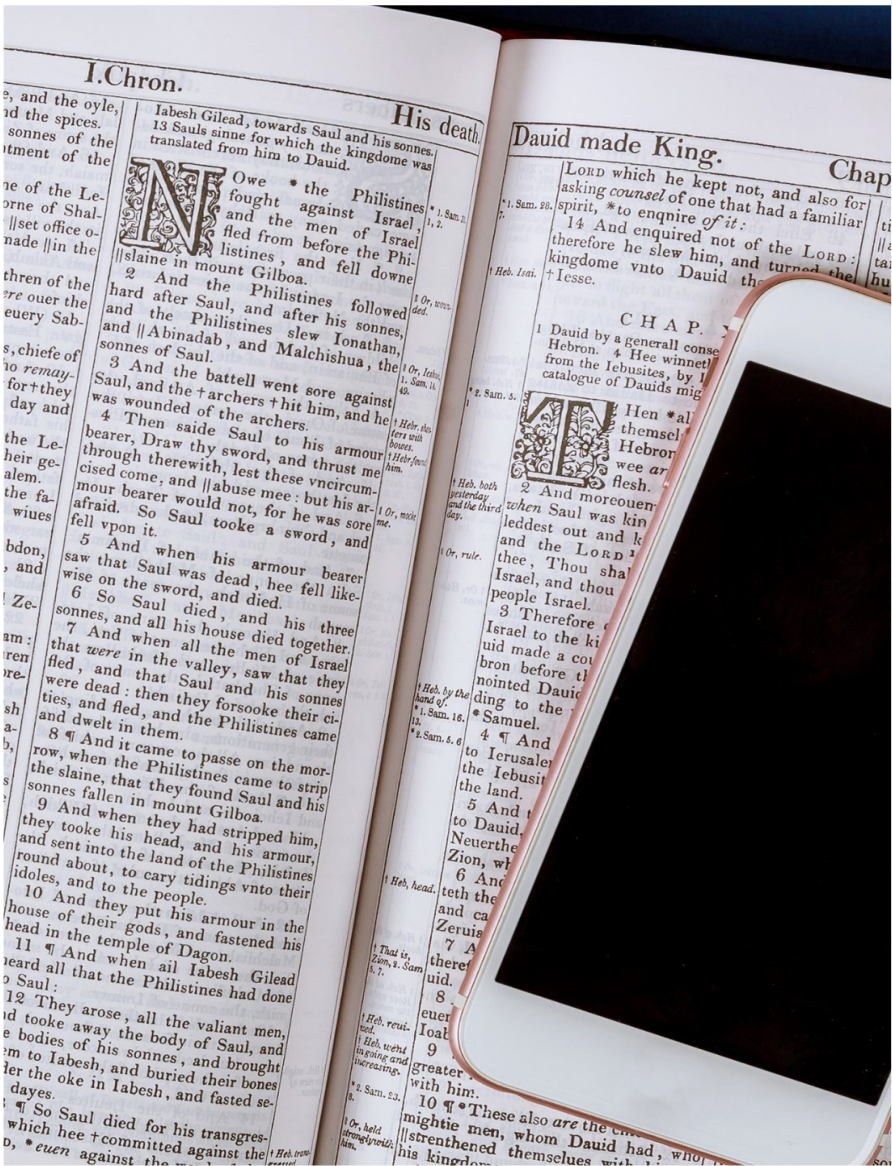 I.Chron.
His death.
e, and the oyle,
nd the spices.
sonnes of the
tment of the
ne of the Le-
orne of Shal-
||set office o-
made ||in the
thren of the
ere ouer the
euery Sab-
s, chiefe of
ho remay-
for†they
day and
the Le-
heir ge-
alem.
the fa-
wiues
bdon,
, and
Ze-
am:
ren
ore-
sh
a-
b,
s
Iabesh Gilead, towards Saul and his sonnes.
13 Sauls sinne for which the kingdome was
translated from him to Dauid.
NOwe *the Philistines
fought against Israel,
and the men of Israel
fled from before the Phi-
listines, and fell downe
||slaine in mount Gilboa.
2 And the Philistines followed
hard after Saul, and after his sonnes,
and the Philistines slew Ionathan,
and ||Abinadab, and Malchishua, the
sonnes of Saul.
3 And the battell went sore against
Saul, and the †archers †hit him, and he
was wounded of the archers.
4 Then saide Saul to his armour
bearer, Draw thy sword, and thrust me
through therewith, lest these vncircum-
cised come, and ||abuse mee: but his ar-
mour bearer would not, for he was sore
afraid. So Saul tooke a sword, and
fell vpon it.
5 And when his armour bearer
saw that Saul was dead, hee fell like-
wise on the sword, and died.
6 So Saul died, and his three
sonnes, and all his house died together.
7 And when all the men of Israel
that were in the valley, saw that they
fled, and that Saul and his sonnes
were dead: then they forsooke their ci-
ties, and fled, and the Philistines came
and dwelt in them.
8 ¶ And it came to passe on the mor-
row, when the Philistines came to strip
the slaine, that they found Saul and his
sonnes fallen in mount Gilboa.
9 And when they had stripped him,
they tooke his head, and his armour,
and sent into the land of the Philistines
round about, to cary tidings vnto their
idoles, and to the people.
10 And they put his armour in the
house of their gods, and fastened his
head in the temple of Dagon.
11 ¶ And when all Iabesh Gilead
heard all that the Philistines had done
o Saul:
12 They arose, all the valiant men,
nd tooke away the body of Saul, and
e bodies of his sonnes, and brought
em to Iabesh, and buried their bones
der the oke in Iabesh, and fasted se-
dayes.
¶ So Saul died for his transgres-
which hee †committed against the
D, *euen against the
* 1. Sam.
1, 2.
|| Or, woun-
ded.
|| Or,
1. Sam. 14.
49.
† Hebr. shoo-
ters with
bowes.
† Hebr. found
him.
|| Or, mocke
me.
† Heb. trans-
Dauid made King.
Chap
LORD which he kept not, and also for
asking counsel of one that had a familiar
spirit, *to enquire of it:
14 And enquired not of the LORD:
therefore he slew him, and turned the
kingdome vnto Dauid the
†Iesse.
CHAP.
1 Dauid by a generall conse
Hebron. 4 Hee winneth
from the Iebusites, by
catalogue of Dauids mig
THen *al
themsel
Hebron
wee ar
flesh.
2 And moreouer
when Saul was kin
leddest out and
and the LORD
thee, Thou sha
Israel, and thou
people Israel.
3 Therefore
Israel to the ki
uid made a cou
bron before th
nointed Dauid
ding to the
*Samuel.
4 ¶ And
to Ierusalem
the Iebusit
the land.
5 And
to Dauid,
Neuerthe
Zion, wh
6 And
teth the
and ca
Zeruia
7 A
theref
uid.
8
euen
Ioab
9
greater
with him.
10 ¶ *These also are the
mightie men, whom Dauid had, who
||strenthened themselues with
his kingdome
* 1. Sam. 28.
7.
† Heb. Isai.
* 2. Sam. 5.
1
† Heb. both
yesterday
and the third
day.
|| Or, rule.
† Heb. by the
hand of.
* 1. Sam. 16.
13.
* 2. Sam. 5. 6
† Heb, head.
† That is,
Zion, 2. Sam
5. 7.
† Heb. reui-
ued.
† Heb. went
in going and
increasing.
* 2. Sam. 23.
8.
|| Or, held
strongly with
him.